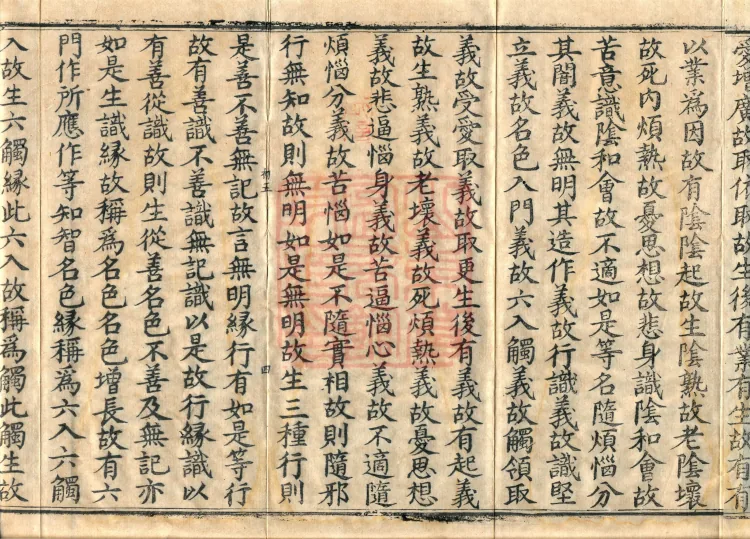 愛增廣故取作取故生後有業有生故有有
以業為因故有陰陰起故生陰熟故老陰壞
故死內煩熱故憂思想故悲身識陰和會故
苦意識陰和會故不適如是等名隨煩惱分
其闇義故無明其造作義故行識義故識堅
立義故名色入門義故六入觸義故觸領取
義故受愛取義故取更生後有義故有起義
故生熟義故老壞義故死煩熱義故憂思想
義故悲逼惱身義故苦逼惱心義故不適隨
煩惱分義故苦惱如是不隨實相故則隨邪
行無知故則無明如是無明故生三種行則
是善不善無記故言無明緣行有如是等行
故有善識不善識無記識以是故行緣識以
有善從識故則生從善名色不善及無記亦
如是生識緣故稱爲名色名色增長故有六
門作所應作等知智名色緣稱爲六入六觸
入故生六觸緣此六入故稱爲觸此觸生故
四